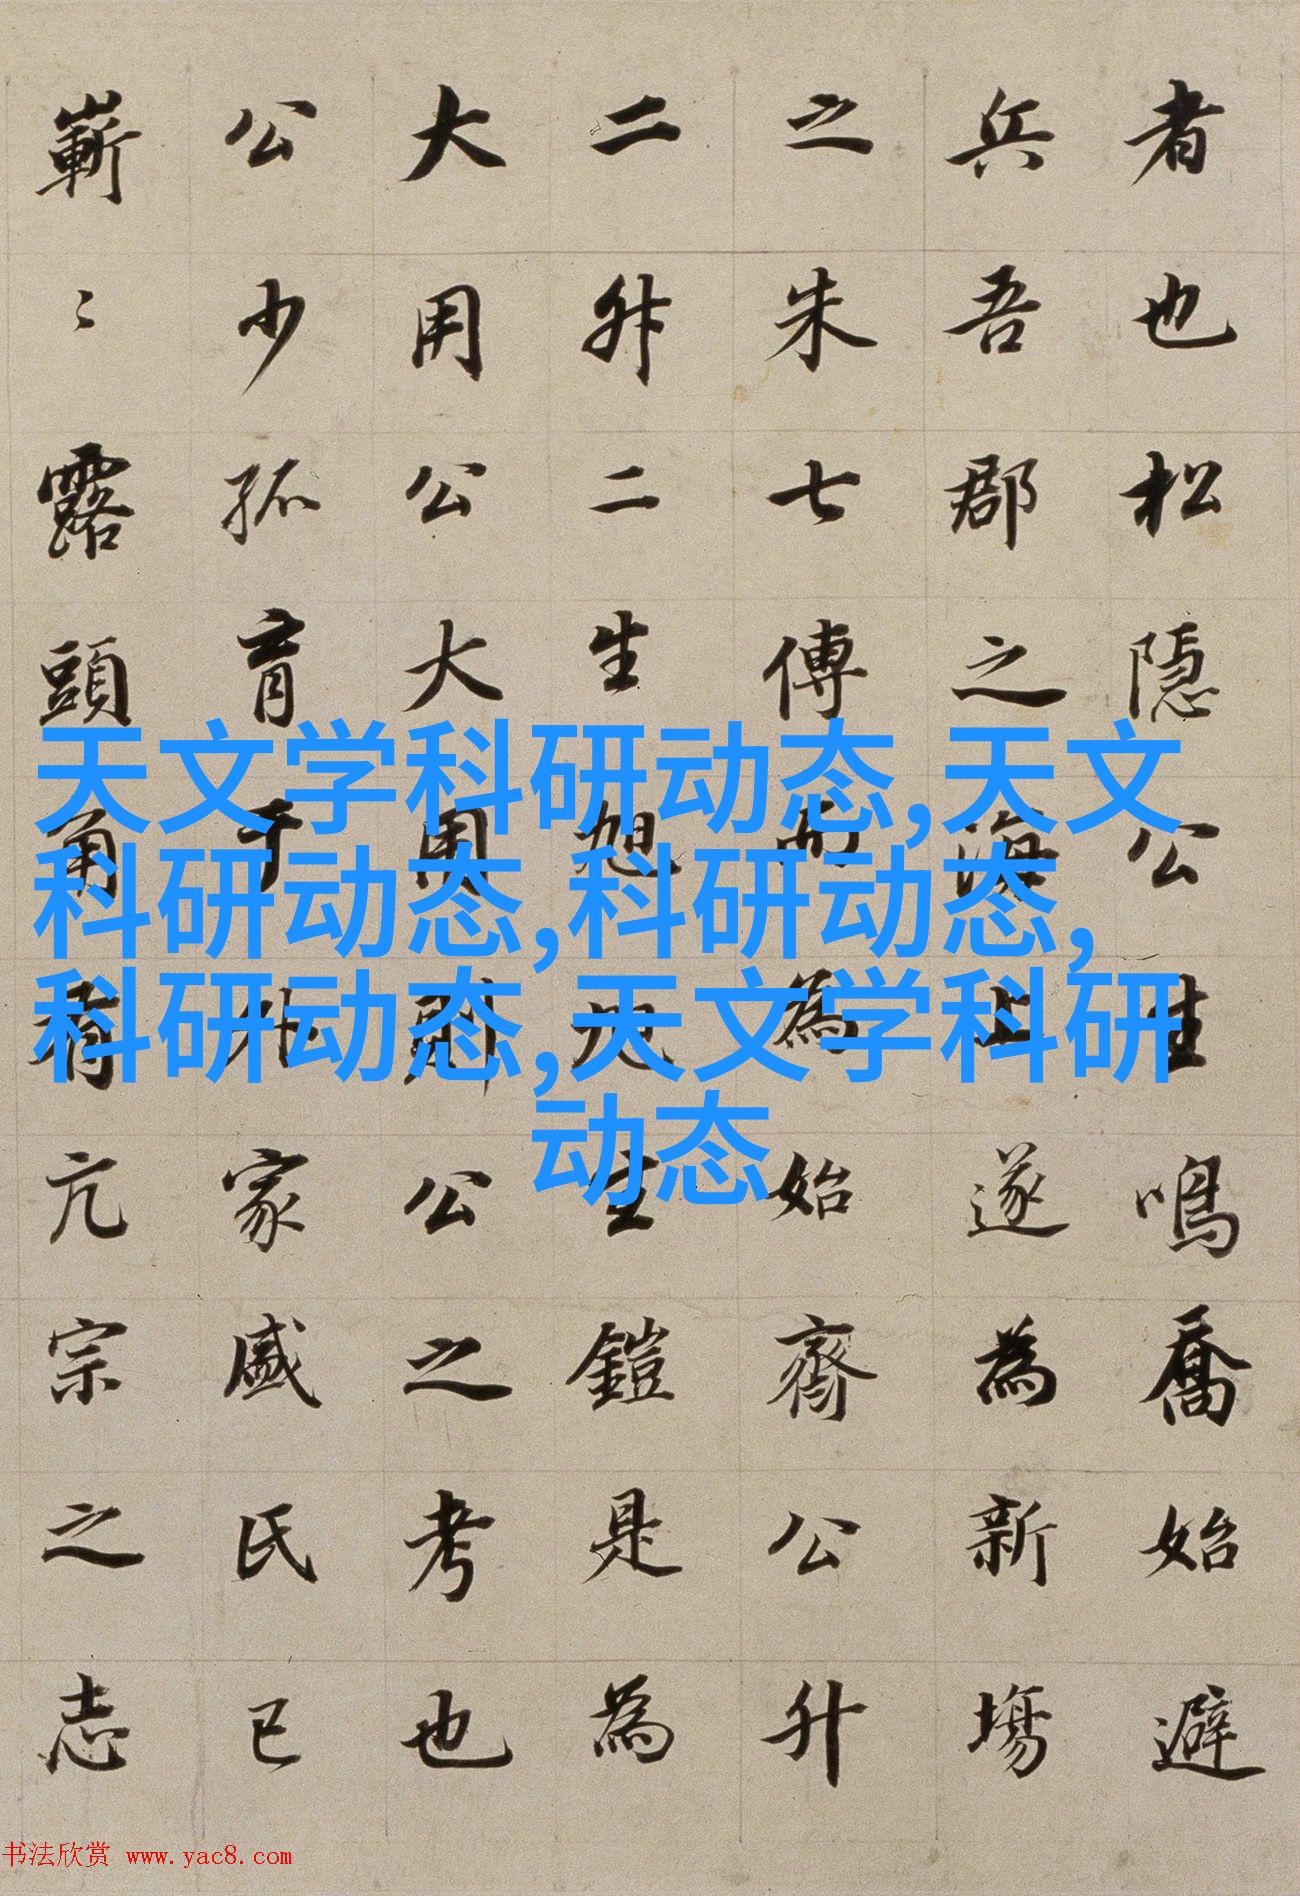 者也松隱公生鳴喬始避
兵吾郡之海上遂為新塲
之朱七傳而為始公升
二升二生旭旭生鎧是為
大用公大用則公之考也
公少孤育于外家氏已
嶄〻露頭角有亢宗之志
天文学科研动态,天文
科研动态,科研动态,
科研动态,天文学科研
动态
书法欣赏 www.yac8.com